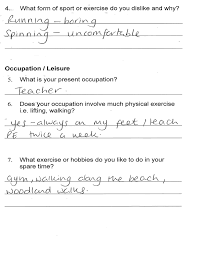 4.. What form of sport or exercise do you dislike and why?
Running - boring
Spinning - uncomfortable
Occupation / Leisure
5. What is your present occupation?
Teacher
6. Does your occupation involve much physical exercise
i.e. lifting, walking?
yes - always on my feet / teach
PE twice a week.
7. What exercise or hobbies do you like to do in your
spare time?
Gym, walking along the beach,
woodland walks.